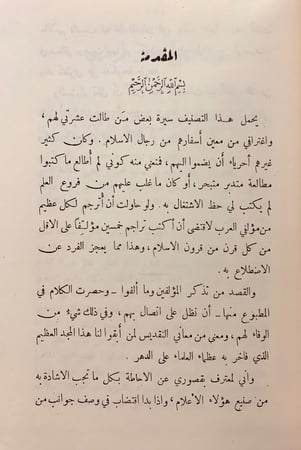 المقدمة
بسم الله الرحمن الرحيم
يحمل هذا التصنيف سيرة بعض من طالت عشرتي لهم،
واغترافي من معين أسفارهم من رجال الاسلام . وكان كثير
غيرهم أحرياء أن يضموا اليهم، فمنعني منه كوني لم أطالع ما كتبوا
مطالعة متدبر متبحر، أو كان ما غلب عليهم من فروع العلم
لم يكتب لي حظ الاشتغال به . ولو حاولت أن أترجم لكل عظيم
من مؤلفي العرب لاقتضى أن أكتب تراجم خمسين مؤلفاً على الاقل
من كل قرن من قرون الاسلام، وهذا مما يعجز الفرد عن
الاضطلاع به .
والقصد من تذكر المؤلفين وما ألفوا - وحصرت الكلام في
المطبوع منها - أن نظل على اتصال بهم، وفي ذلك شيء من
الوفاء لهم، ومعنى من معاني التقديس لمن أبقوا لنا هذا المجد العظيم
الذي فاخر به عظماء العلماء على الدهر .
واني لمعترف بقصوري عن الاحاطة بكل ما تجب الاشادة به
من صنيع هؤلاء الأعلام، واذا بدا اقتضاب في وصف جوانب من